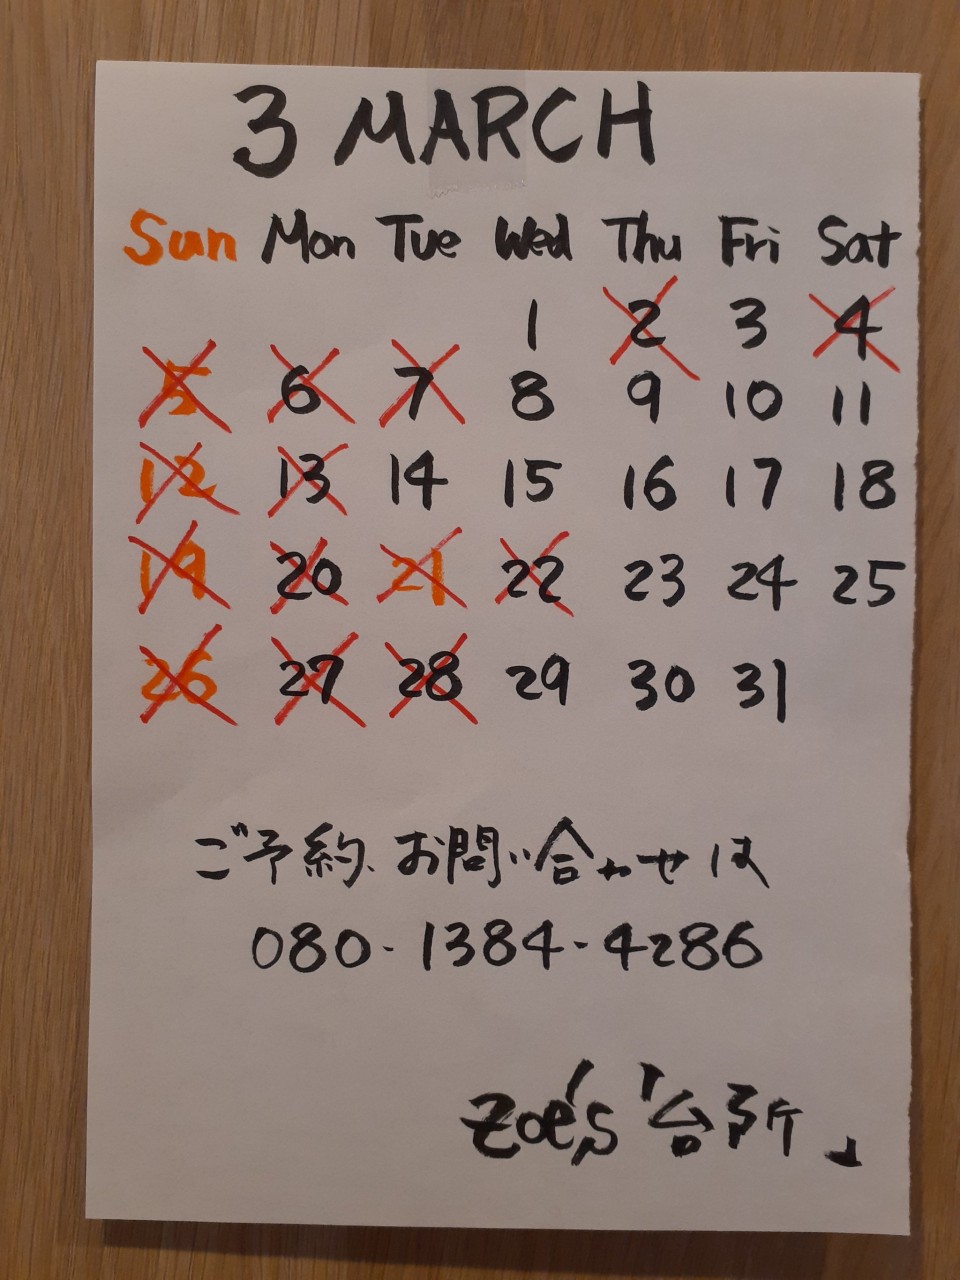 3 MARCH
Sun Mon Tue Wed Thu Fri Sat
1 2 3 4
5 6 7 8 9 10 11
12 13 14 15 16 17 18
19 20 21 22 23 24 25
26 27 28 29 30 31
ご予約、お問い合わせは
080-1384-4286
Zoe's「台所」